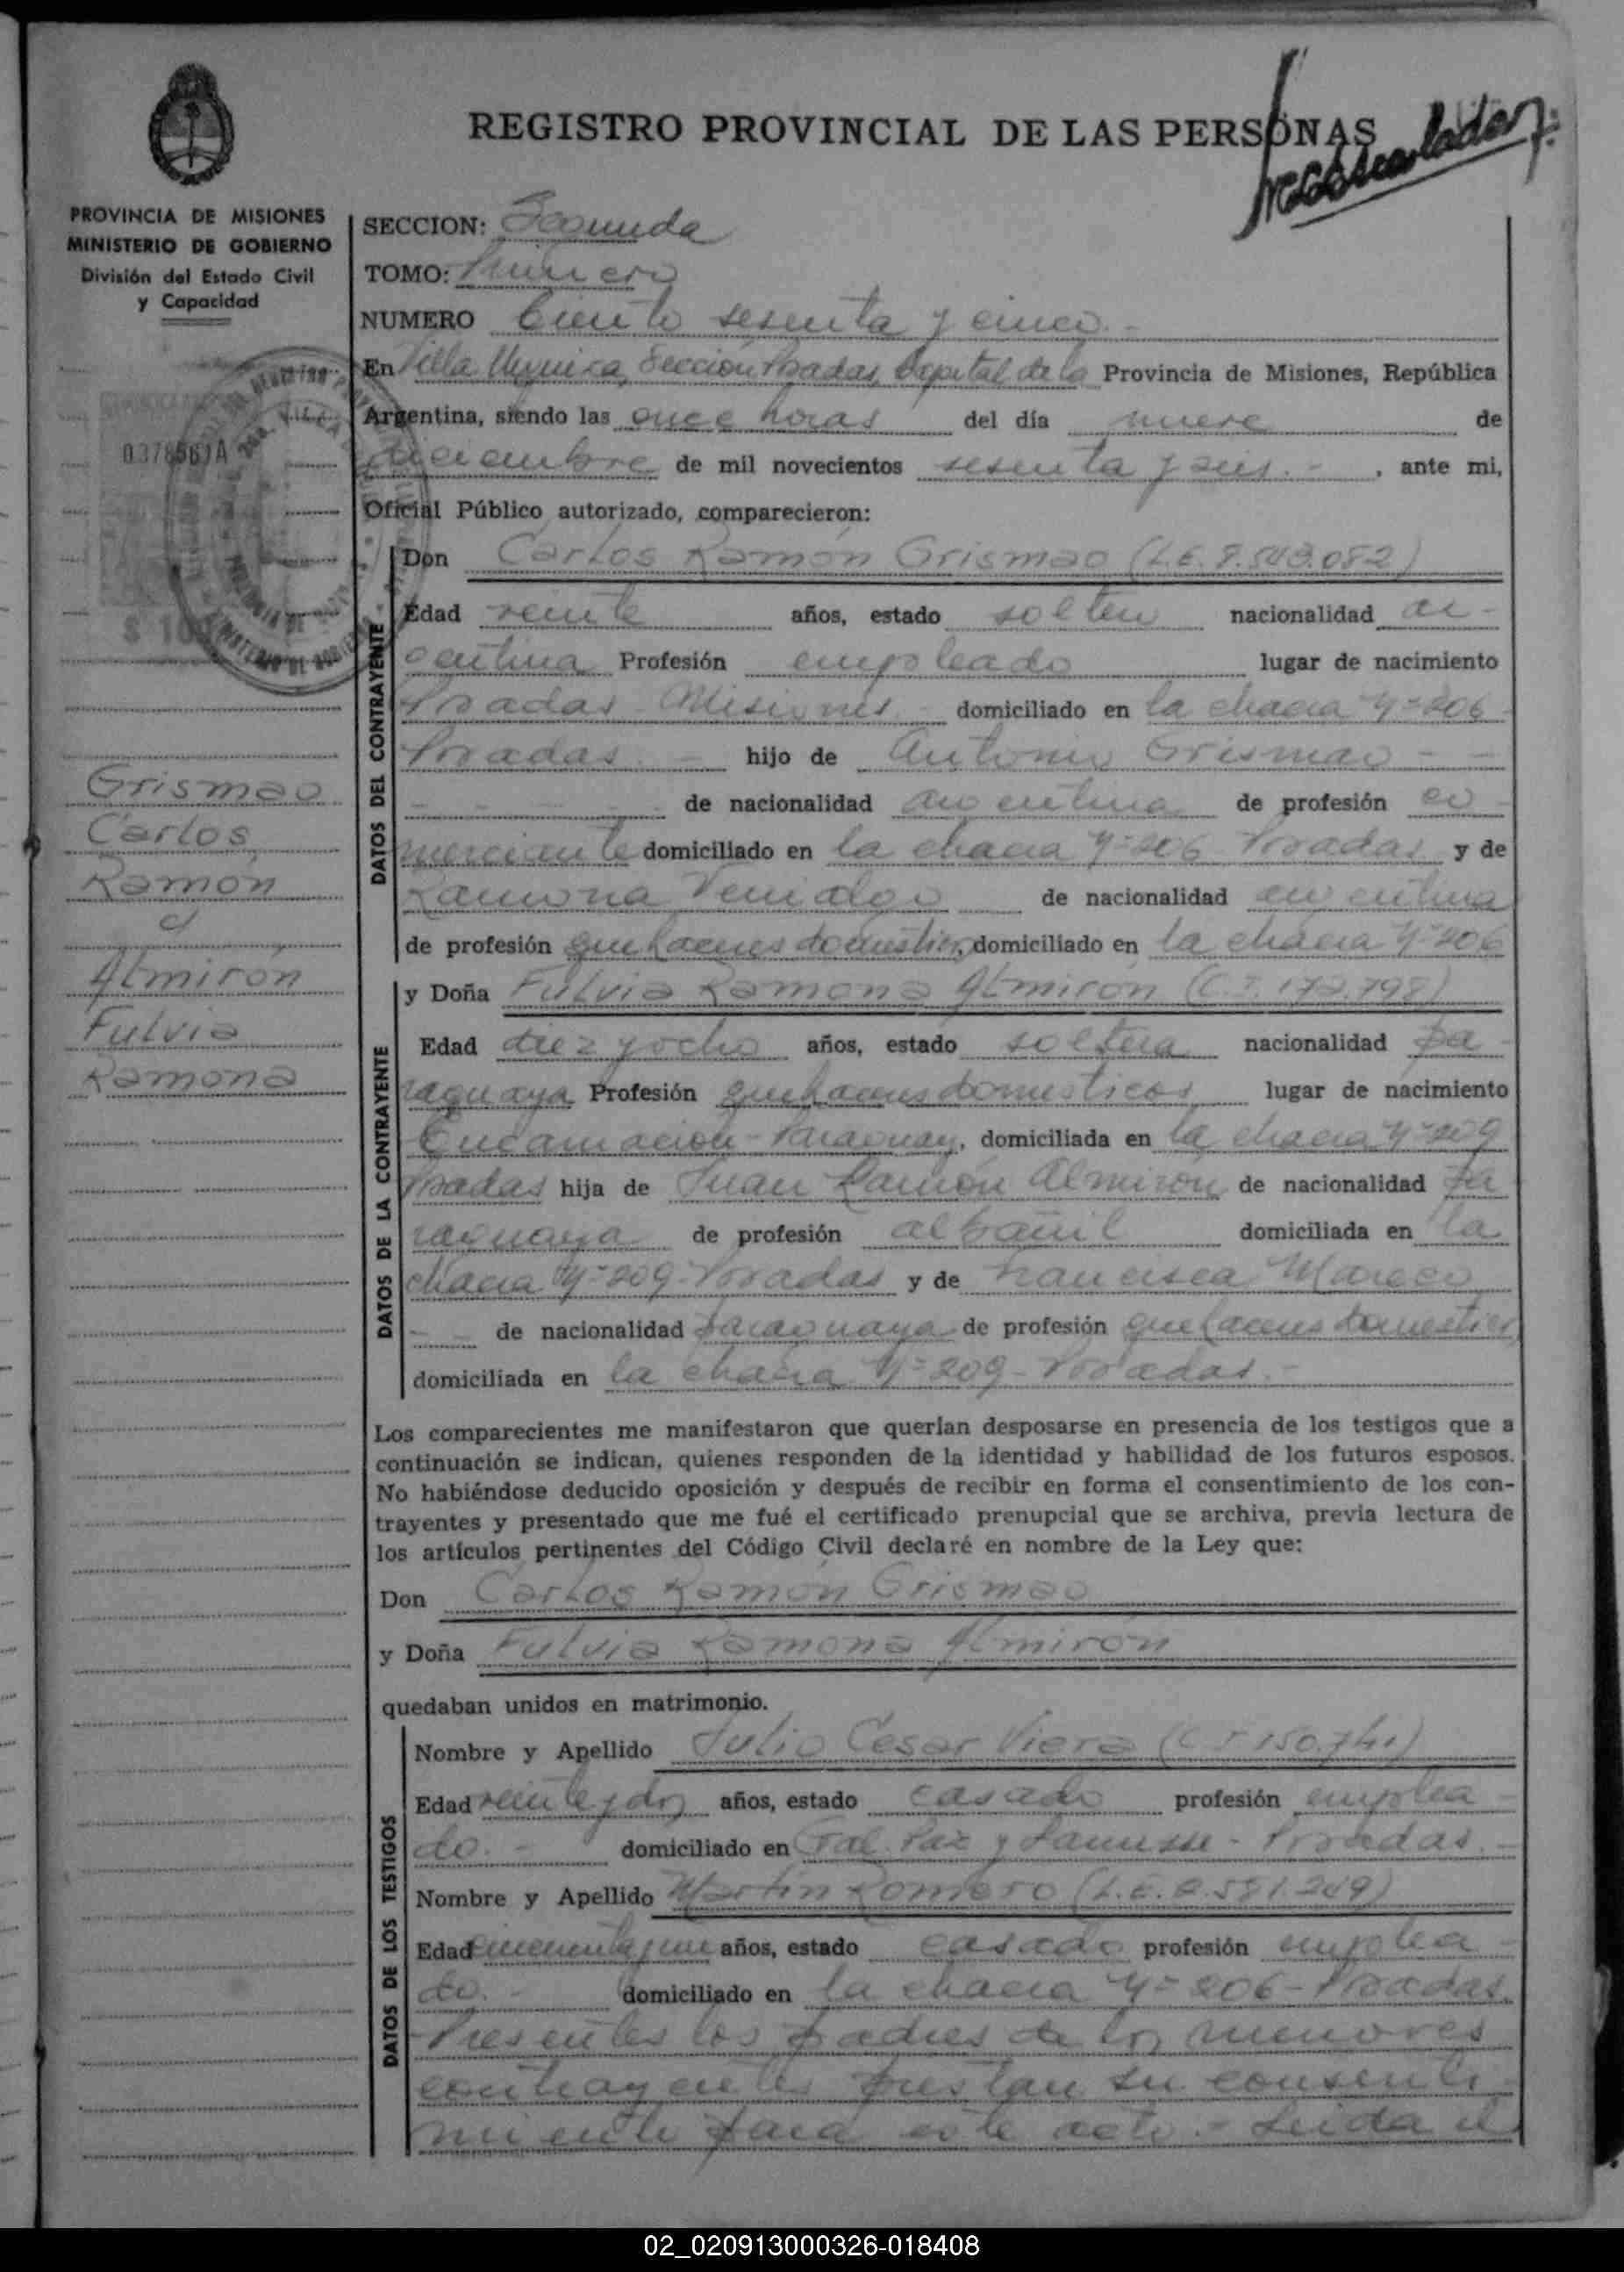 REGISTRO PROVINCIAL DE LAS PERSONAS
PROVINCIA DE MISIONES
MINISTERIO DE GOBIERNO
División del Estado Civil
y Capacidad
0378561A
Grismao
Carlos
Ramón
y
Almirón
Fulvia
Ramona
SECCION: Segunda
TOMO: Primero
NUMERO Ciento sesenta y cinco.-
En Villa Urquiza, Sección Posadas, Capital de la Provincia de Misiones, República
Argentina, siendo las once horas del día nueve de
diciembre de mil novecientos sesenta y seis.- , ante mi,
Oficial Público autorizado, comparecieron:
DATOS DEL CONTRAYENTE
Don Carlos Ramón Grismao (L.E. 8.543.082)
Edad veinte años, estado soltero nacionalidad ar-
gentina Profesión empleado lugar de nacimiento
Posadas - Misiones.- domiciliado en la chacra Nº 206
Posadas.- hijo de Antonio Grismao - -
- - - - - de nacionalidad argentina de profesión co-
merciante domiciliado en la chacra Nº 206 Posadas y de
Ramona de nacionalidad argentina
de profesión quehaceres domésticos, domiciliado en la chacra Nº 206
DATOS DE LA CONTRAYENTE
y Doña Fulvia Ramona Almirón (C.I. 172.798)
Edad diez y ocho años, estado soltera nacionalidad pa-
raguaya Profesión quehaceres domésticos lugar de nacimiento
Encarnación - Paraguay, domiciliada en la chacra Nº 209
Posadas hija de Juan Ramón Almirón de nacionalidad pa
raguaya de profesión albañil domiciliada en la
chacra Nº 209 - Posadas y de Francisca Mareco
- - de nacionalidad paraguaya de profesión quehaceres domésticos
domiciliada en la chacra Nº 209 - Posadas.-
Los comparecientes me manifestaron que querían desposarse en presencia de los testigos que a
continuación se indican, quienes responden de la identidad y habilidad de los futuros esposos.
No habiéndose deducido oposición y después de recibir en forma el consentimiento de los con-
trayentes y presentado que me fué el certificado prenupcial que se archiva, previa lectura de
los artículos pertinentes del Código Civil declaré en nombre de la Ley que:
Don Carlos Ramón Grismao
y Doña Fulvia Ramona Almirón
quedaban unidos en matrimonio.
DATOS DE LOS TESTIGOS
Nombre y Apellido Julio Cesar Viera (C I 150.741)
Edad veinte y dos años, estado casado profesión emplea-
do.- domiciliado en Gral. Paz y Lanusse - Posadas.-
Nombre y Apellido Martín Romero (L.E. 2.581.249)
Edad cincuenta y un años, estado casado profesión emplea-
do.- domiciliado en la chacra Nº 206 - Posadas.
Presentes los padres de los menores
contrayentes prestan su consenti-
miento para este acto.- Leida el
02_020913000326-018408